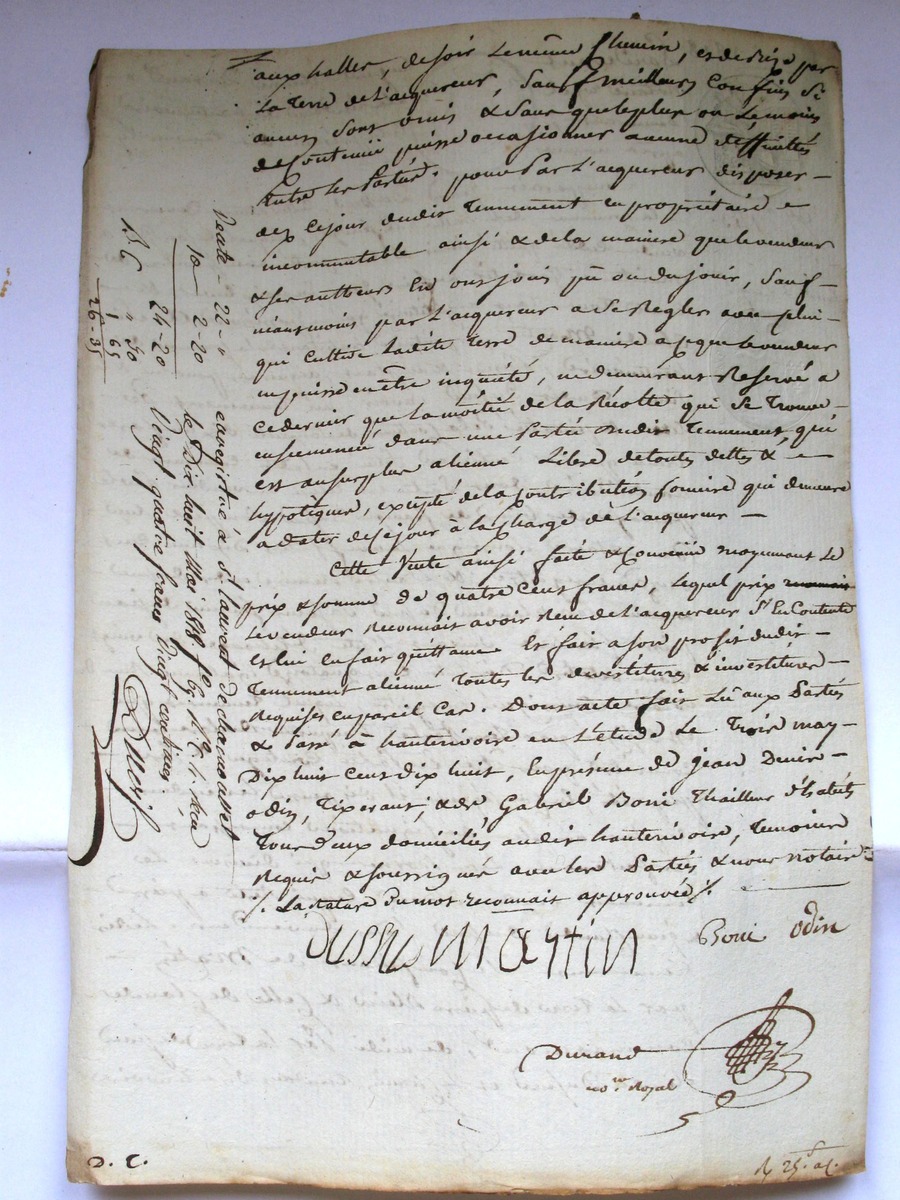 aux halles, de soir le même Chemin, et de bize par
la terre de l'acquereur, Sauf meilleurs Confins Si
aucuns Sont omis & Sans que le plus ou le moins
de Contenue puisse occasionner aucune difficultés
Entre les Parties. pour Par l'acquereur disposer -
dez Cejour dudit Tennement en propriétaire
incommutable ainsi & de la maniere que le vendeur
& ses autheurs En ont joui pû ou du jouir, Sauf -
néansmoins par l'acquereur a Se Regler avec celui -
qui Cultive Ladite Terre de maniere a ce que le vendeur
ne puisse en être inquiété, ne demeurant Reservé a
Ce dernier que la moitié de la Récolte qui Se Trouve -
ensemencée dans une Partie dudit Tennement, qui
est au surplus aliénné Libre de toutes dettes &
hypotèques, excepté de la Contribution fonciere qui demeure
a dater de Cejour à la Charge de l'acquereur -
Cette Vente ainsi faite & Convenue moyennant le
prix & somme de quatre Cens francs, lequel prix
le vendeur Reconnait avoir Reçu de l'acquereur S'En Contente
et lui en fait quittance Et fait a son profit dudit -
Tennement alienné Toutes les devestitures & investitures -
Requises en pareil Cas. Dont acte fait Lû aux Parties
& Passé à hauterivoire en L'etude Le Trois may -
Dix huit Cens dix huit, En présence de jean Denis -
odin, Tixerant, & de Gabriel Boni Thailleur d'habits
Tous deux domiciliés audit hauterivoire, Temoins
Requis & soussignés avec les Parties & nous notaire
/. La rature du mot reconnait approuvée /.
Dussu Martin
Boni odin
Durand
no.re Royal
D. C.
Vente - 22 - "
10 - 2 - 20
24 - 20
R. C " 50
1 65
26 - 35
enregistré à St Laurent de chamousset
le Dix huit Mai 1818. fo 69. R. C. 4. Reçu
Vingt quatre francs Vingt centimes.